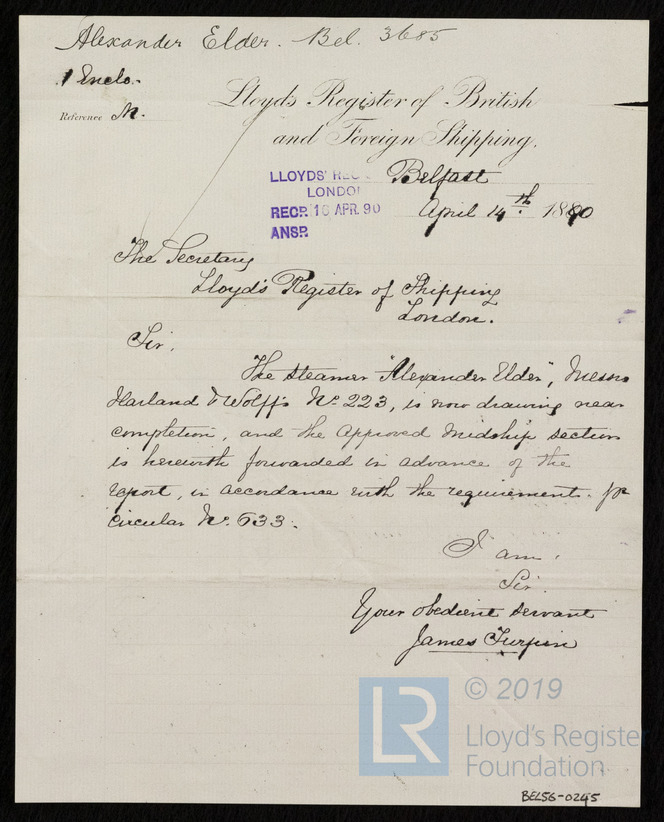 Alexander Elder. Bel. 3685
1 Enclo.
Reference M.
Lloyds Register of British
and Foreign Shipping.
LLOYDS' REG
LONDO
RECP. 16 APR. 90
ANSP.
Belfast
April 14th. 1890
The Secretary
Lloyd's Register of Shipping
London.
Sir.
The steamer "Alexander Elder", Messrs
Harland & Wolff's No. 223, is now drawing near
completion, and the approved midship section
is herewith forwarded in advance of the
report, in accordance with the requirements. pr
circular No. 633.
I am.
Sir.
Your obedient servant
James Turpin
LR
© 2019
Lloyd's Register
Foundation
BEL56-0245